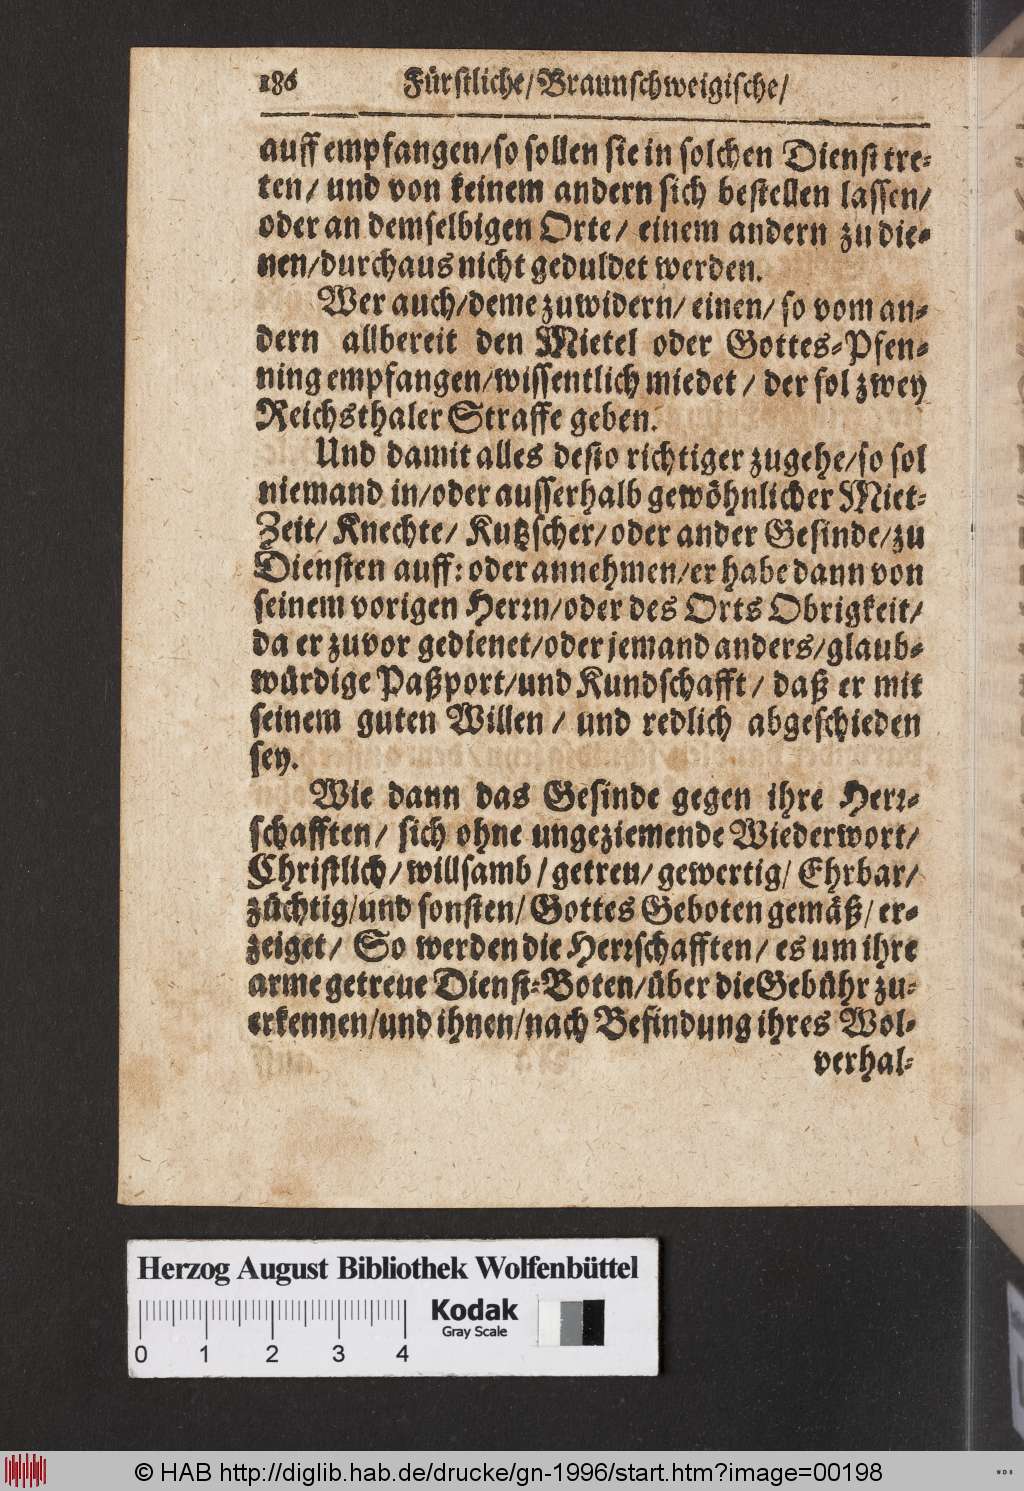 186 Fürstliche/Braunschweigische/
auff empfangen/so sollen sie in solchen Dienst tre-
ten/ und von keinem andern sich bestellen lassen/
oder an demselbigen Orte/ einem andern zu die-
nen/durchaus nicht geduldet werden.
Wer auch/deme zuwidern/ einen/ so vom an-
dern allbereit den Mietel oder Gottes-Pfen-
ning empfangen/wissentlich miedet / der sol zwey
Reichsthaler Straffe geben.
Und damit alles desto richtiger zugehe/so sol
niemand in/oder ausserhalb gewöhnlicher Miet-
Zeit/ Knechte/ Kutzscher/oder ander Gesinde/zu
Diensten auff: oder annehmen/er habe dann von
seinem vorigen Herrn/oder des Orts Obrigkeit/
da er zuvor gedienet/oder jemand anders/glaub-
würdige Paßport/und Kundschafft/ daß er mit
seinem guten Willen / und redlich abgeschieden
sey.
Wie dann das Gesinde gegen ihre Herr-
schafften/ sich ohne ungeziemende Wiederwort/
Christlich/willsamb / getreu/ gewertig/ Ehrbar/
züchtig/und sonsten/ Gottes Geboten gemäß/ er-
zeiget/ So werden die Herrschafften/ es um ihre
arme getreue Dienst-Boten/über die Gebühr zu-
erkennen/und ihnen/nach Befindung ihres Wol-
verhal-
Herzog August Bibliothek Wolfenbüttel
Kodak
Gray Scale
0 1 2 3 4
© HAB http://diglib.hab.de/drucke/gn-1996/start.htm?image=00198
WDB